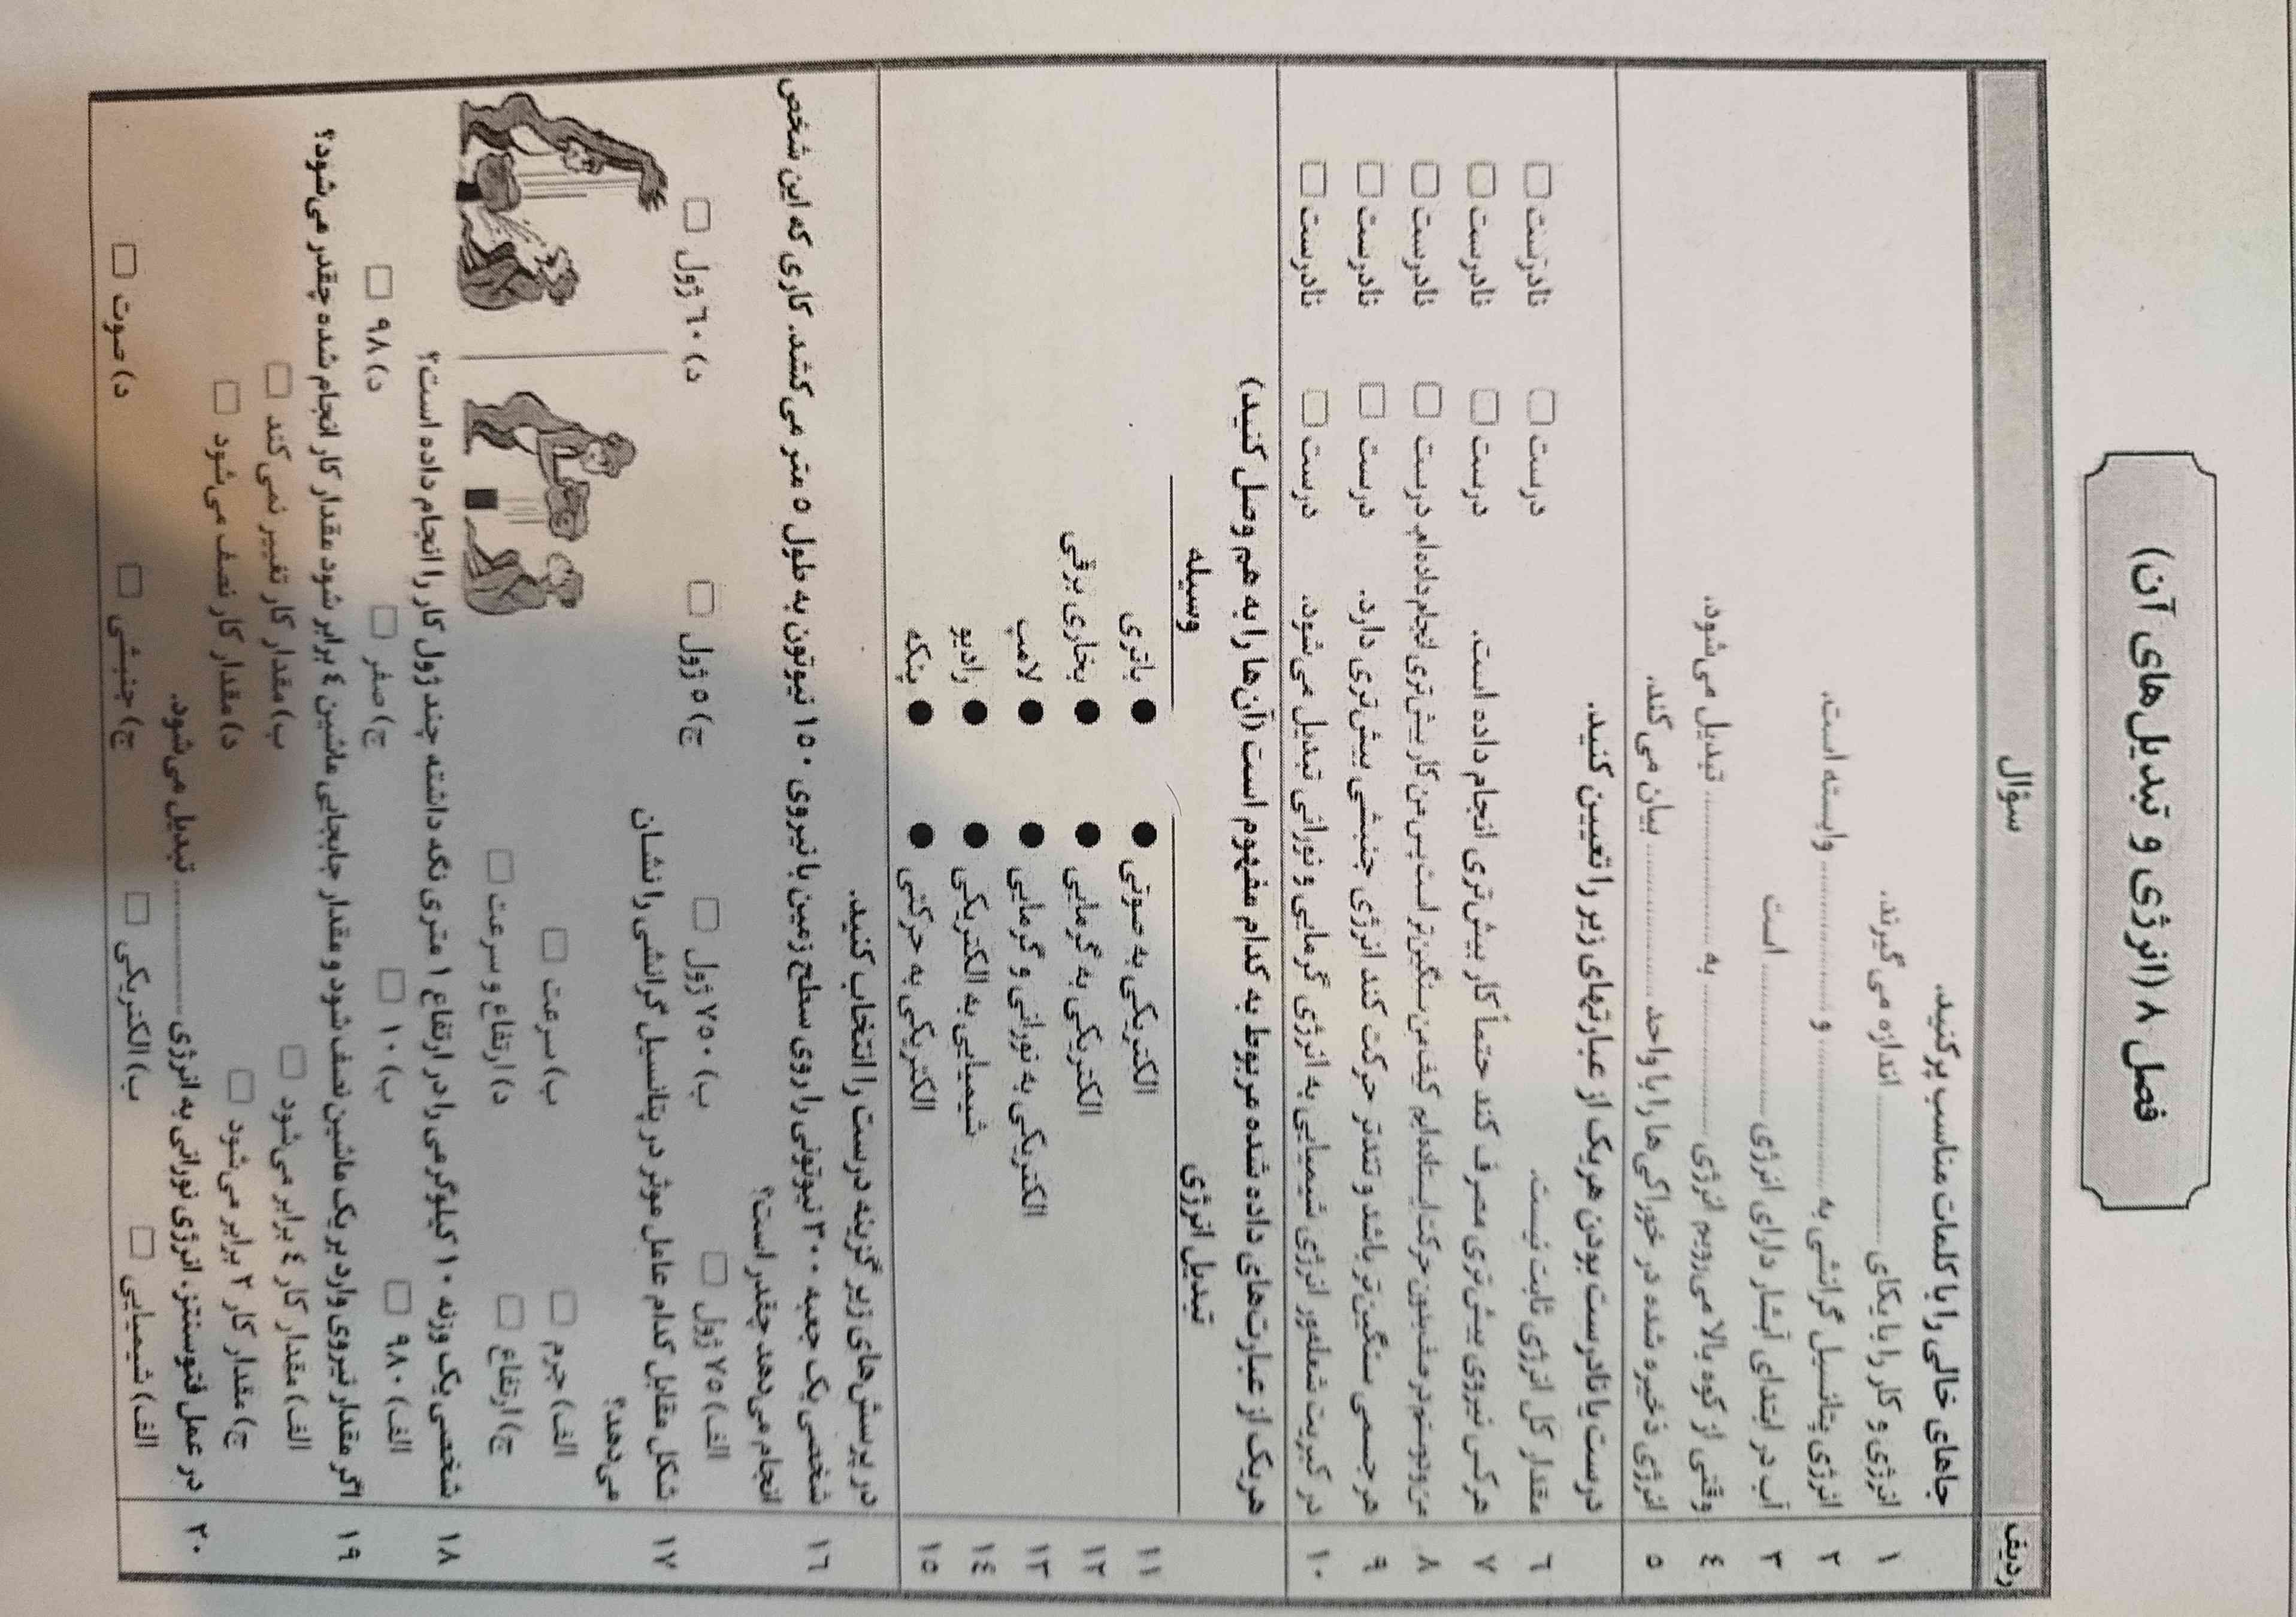 فصل ۸ (انرژی و تبدیل‌های آن)
ردیف سؤال
جاهای خالی را با کلمات مناسب پر کنید.
۱ انرژی و کار را با یکای .................... اندازه می گیرند.
۲ انرژی پتانسیل گرانشی به .................... و .................... وابسته است.
۳ آب در ابتدای آبشار دارای انرژی .................... است
۴ وقتی از کوه بالا می‌رویم انرژی .................... به .................... تبدیل می‌شود.
۵ انرژی ذخیره شده در خوراکی‌ها را با واحد .................... بیان می کند.
درست یا نادرست بودن هریک از عبارتهای زیر را تعیین کنید.
۶ مقدار کل انرژی ثابت نیست. درست □ نادرست □
۷ هرکس نیروی بیش‌تری مصرف کند حتماً کار بیش‌تری انجام داده است. درست □ نادرست □
۸ من و دوستم در صف بدون حرکت ایستاده‌ایم کیف من سنگین‌تر است پس من کار بیش‌تری انجام داده‌ام. درست □ نادرست □
۹ هر جسمی سنگین‌تر باشد و تندتر حرکت کند انرژی جنبشی بیش‌تری دارد. درست □ نادرست □
۱۰ در کبریت شعله‌ور انرژی شیمیایی به انرژی گرمایی و نورانی تبدیل می‌شود. درست □ نادرست □
هریک از عبارت‌های داده شده مربوط به کدام مفهوم است (آن‌ها را به هم وصل کنید)
تبدیل انرژی وسیله
۱۱ الکتریکی به صوتی ● ● باتری
۱۲ الکتریکی به گرمایی ● ● بخاری برقی
۱۳ الکتریکی به نورانی و گرمایی ● ● لامپ
۱۴ شیمیایی به الکتریکی ● ● رادیو
۱۵ الکتریکی به حرکتی ● ● پنکه
در پرسش‌های زیر گزینه درست را انتخاب کنید.
۱۶ شخصی یک جعبه ۳۰۰ نیوتونی را روی سطح زمین با نیروی ۱۵۰ نیوتون به طول ۵ متر می کشد. کاری که این شخص
انجام می‌دهد چقدر است؟
الف) ۷۵ ژول □ ب) ۷۵۰ ژول □ ج) ۵ ژول □ د) ۶۰ ژول □
۱۷ شکل مقابل کدام عامل موثر در پتانسیل گرانشی را نشان
می‌دهد؟
الف) جرم □ ب) سرعت □
ج) ارتفاع □ د) ارتفاع و سرعت □
۱۸ شخصی یک وزنه ۱۰ کیلوگرمی را در ارتفاع ۱ متری نگه داشته چند ژول کار را انجام داده است؟
الف) ۹۸۰ □ ب) ۱۰ □ ج) صفر □ د) ۹۸ □
۱۹ اگر مقدار نیروی وارد بر یک ماشین نصف شود و مقدار جابجایی ماشین ۴ برابر شود مقدار کار انجام شده چقدر می‌شود؟
الف) مقدار کار ۴ برابر می‌شود □ ب) مقدار کار تغییر نمی کند □
ج) مقدار کار ۲ برابر می‌شود □ د) مقدار کار نصف می‌شود □
۲۰ در عمل فتوسنتز. انرژی نورانی به انرژی .................... تبدیل می‌شود.
الف) شیمیایی □ ب) الکتریکی □ ج) جنبشی □ د) صوت □